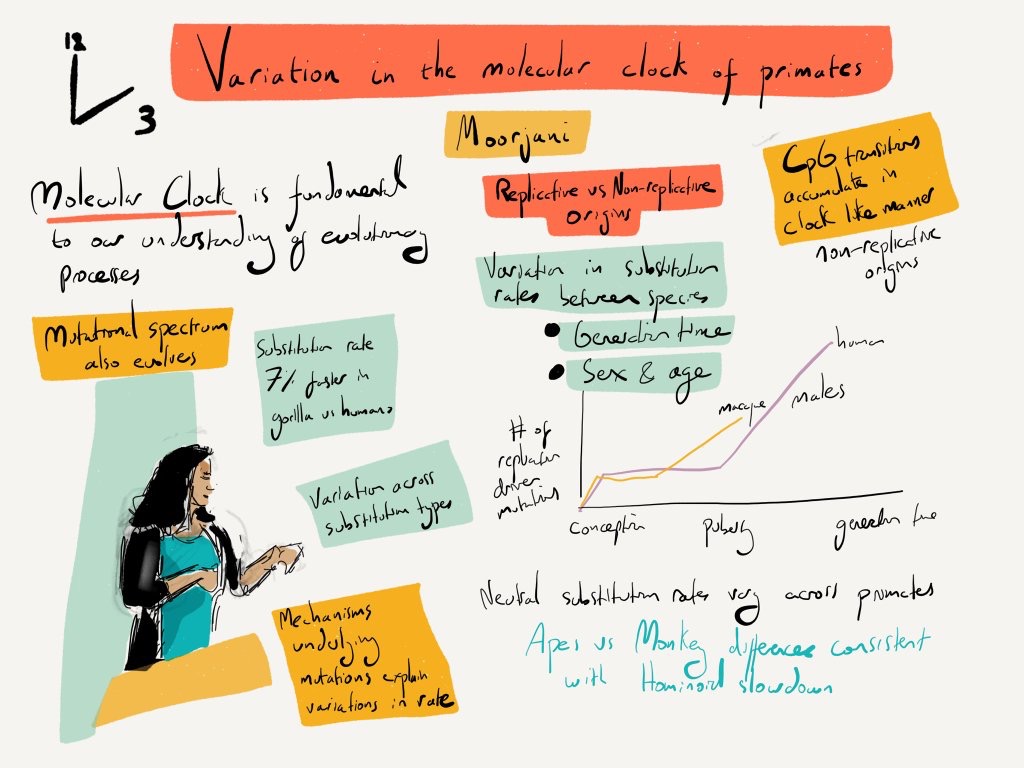 12
3
Variation in the molecular clock of primates
Moorjani
Molecular Clock is fundamental
to our understanding of evolutionary
processes
Mutational spectrum
also evolves
Substitution rate
7% faster in
gorilla vs humans
Variation across
substitution types
Mechanisms
underlying
mutations explain
variations in rate
Replicative vs Non-replicative
origins
Variation in substitution
rates between species
• Generation time
• Sex & age
CpG transitions
accumulate in
clock like manner
non-replicative
origins
# of
replication
driven
mutations
macaque
human
males
conception
puberty
generation time
Neutral substitution rates vary across primates
Apes vs Monkey differences consistent
with Hominoid slowdown